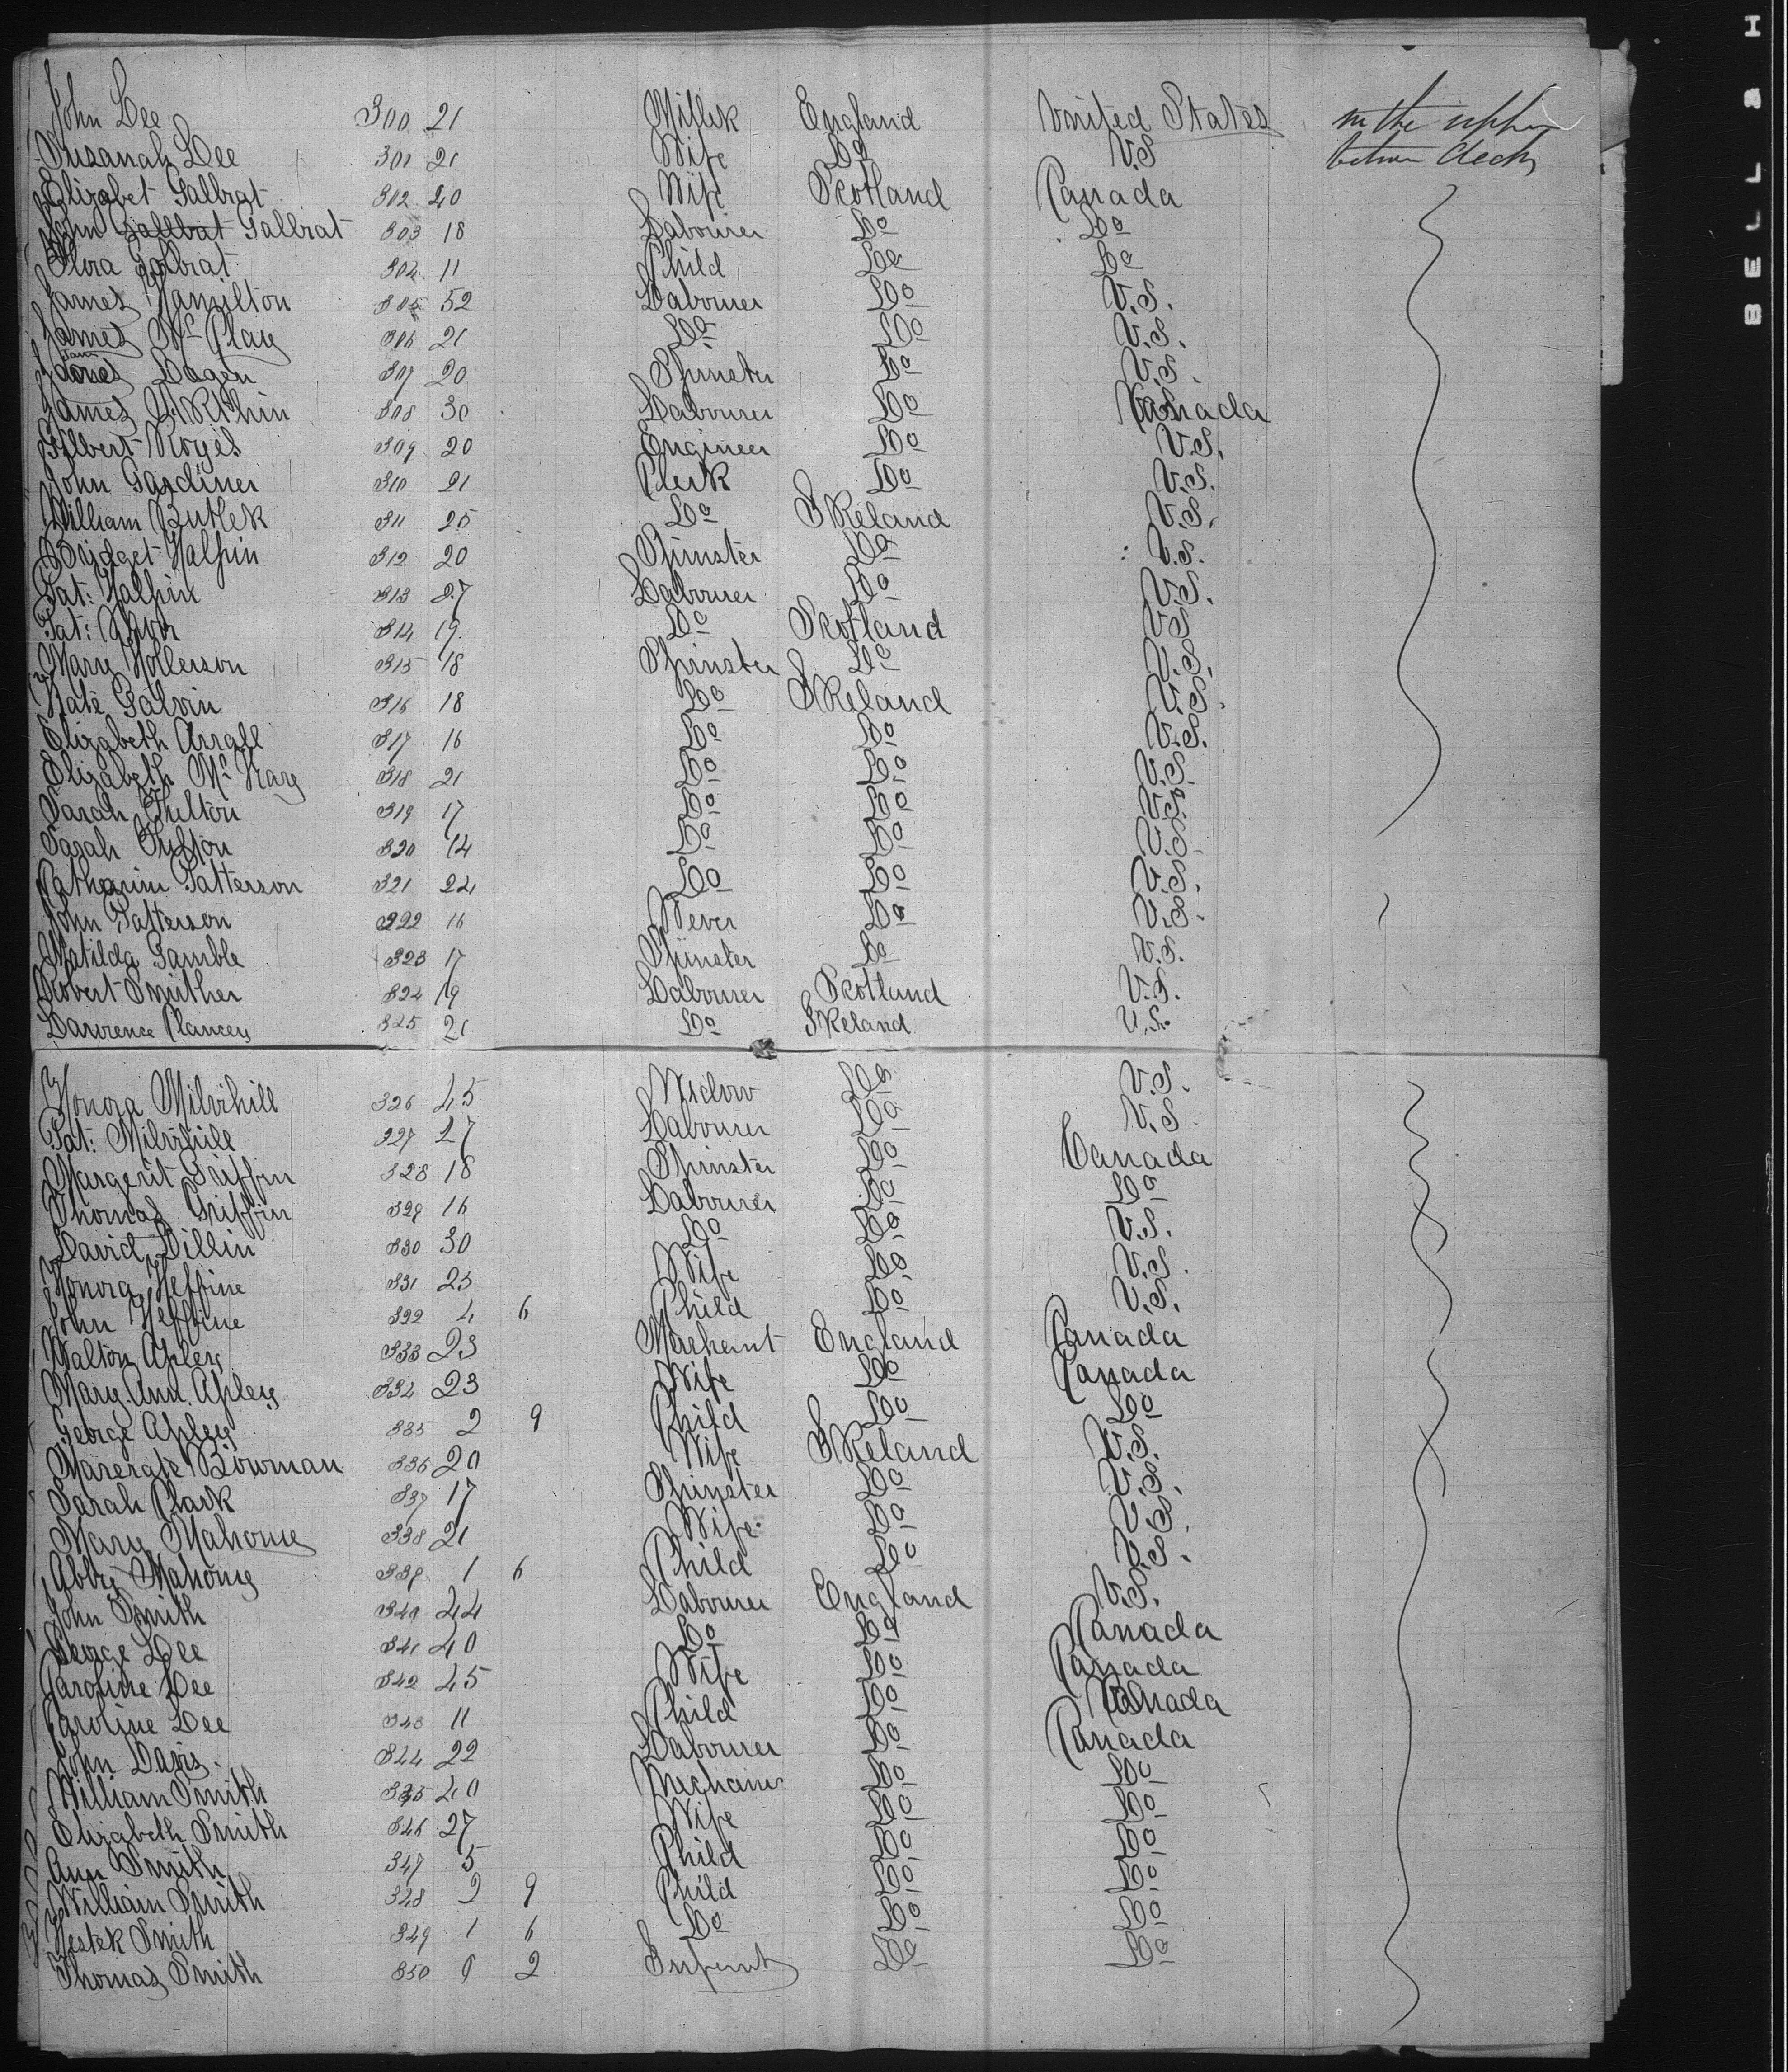 John Lee 300 21 Millek England United States in the upper
Susanah Lee 301 21 Wife Do U.S between decks
Elizabet Galbrat 302 20 Wife Scotland Canada
John Gallbrat Galbrat 303 18 Labourer Do Do
Flora Galbrat 304 11 Child Do Do
James Hamilton 305 52 Labourer Do U.S.
James Mc Clay 306 21 Do Do U.S.
Jane Logen 307 20 Spinster Do U.S.
James 308 30 Labourer Do Canada
Gilbert Noyes 309 20 Engineer Do U.S.
John Gardiner 310 21 Clerk Do U.S.
William Butlek 311 25 Do IReland U.S.
Bridget Halpin 312 20 Spinster Do U.S.
Pat: Halpin 313 27 Labourer Do U.S.
Pat: 314 19 Do Scotland U.S
Mary Hollerson 315 18 Spinster Do U.S.
Kate Galvin 316 18 Do IReland U.S.
Elizabeth Arrall 317 16 Do Do U.S.
Elizabeth Mc Kary 318 21 Do Do U.S.
Sarah Fulton 319 17 Do Do U.S.
Sarah Fulton 320 14 Do Do U.S.
Catharim Patterson 321 22 Do Do U.S.
John Patterson 322 16 Wever Do U.S.
Matilda Gamble 323 17 Spinster Do U.S.
Robert Smither 324 19 Labourer Scotland U.S.
Lawrence Clancey 325 21 Do IReland U.S.
Honora Milvihill 326 45 Widow Do U.S.
Pat: Milvihill 327 27 Labourer Do U.S.
Margerit Griffin 328 18 Spinster Do Canada
Thomas Griffin 329 16 Labourer Do Do
David Dillin 330 30 Do Do U.S.
Honora Heffine 331 25 Wife Do U.S.
John Heffine 332 4 6 Child Do U.S.
Walton Apley 333 23 Merchant England Canada
Mary Ann Apley 334 23 Wife Do Canada
George Apley 335 2 9 Child Do Do
Marerate Bowman 336 20 Wife IReland U.S.
Sarah Clark 337 17 Spinster Do U.S.
Mary Mahony 338 21 Wife Do U.S.
Abby Mahony 339 1 6 Child Do U.S.
John Smith 340 44 Labourer England U.S.
George Lee 341 40 Do Do Canada
Caroline Lee 342 45 Wife Do Canada
Caroline Lee 343 11 Child Do Canada
John Davis 344 22 Labourer Do Canada
William Smith 345 40 Mechanic Do Do
Elizabeth Smith 346 27 Wife Do Do
Ann Smith 347 5 Child Do Do
William Smith 348 2 9 Child Do Do
Hestek Smith 349 1 6 Do Do Do
Thomas Smith 350 0 2 Infant Do Do
BELL & H